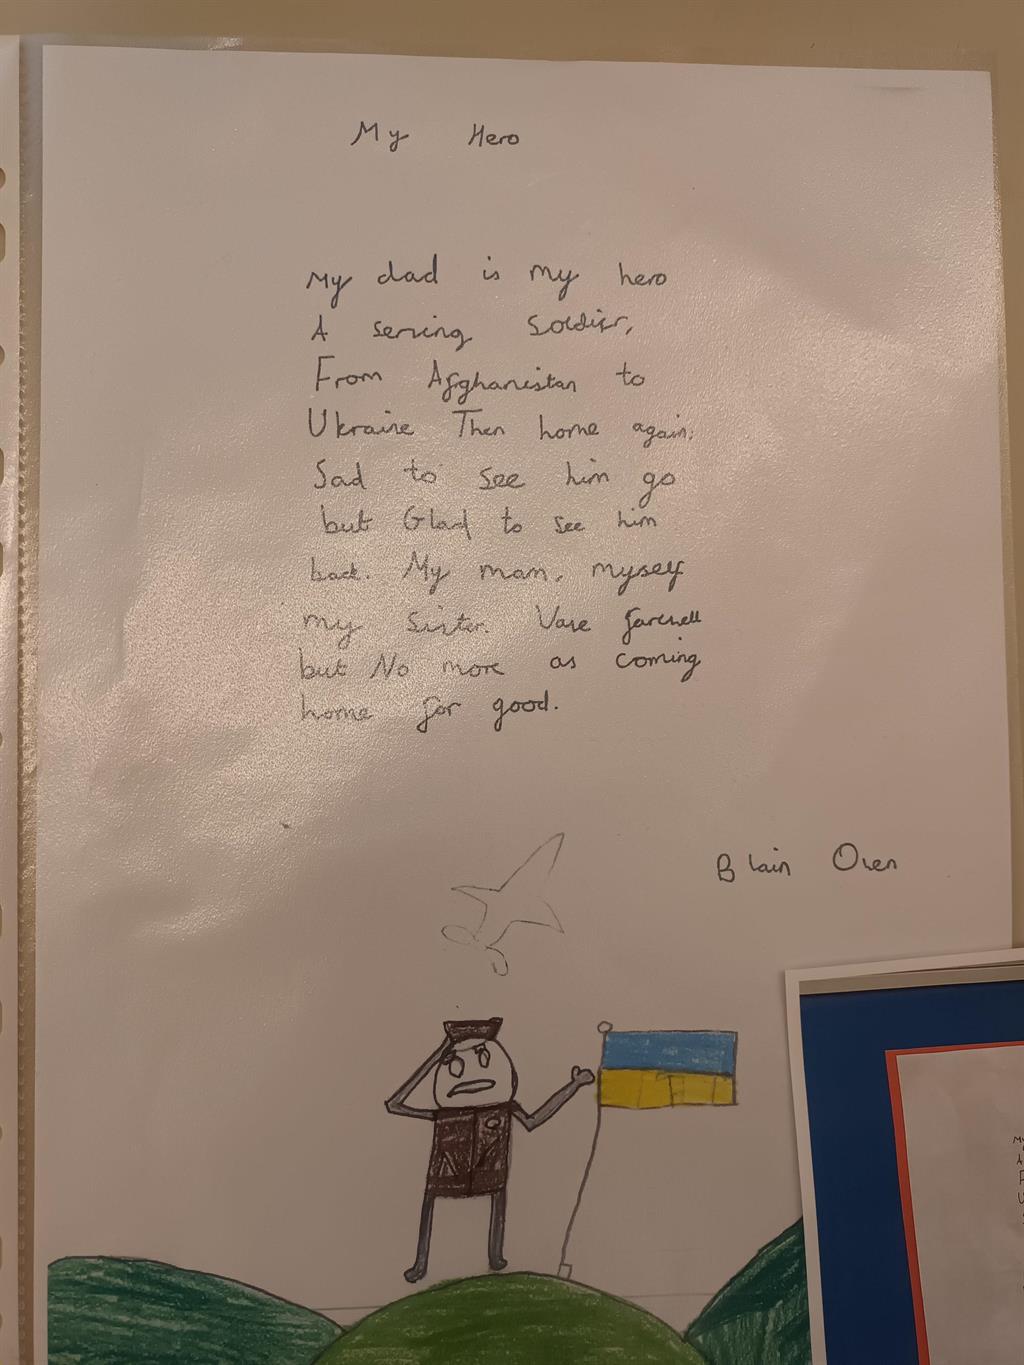 My Hero
My dad is my hero
A serving soldier,
From Afghanistan to
Ukraine Then home again.
Sad to see him go
but Glad to see him
back. My mam, myself
my sister. Vase farewell
but No more as coming
home for good.
Blain Owen